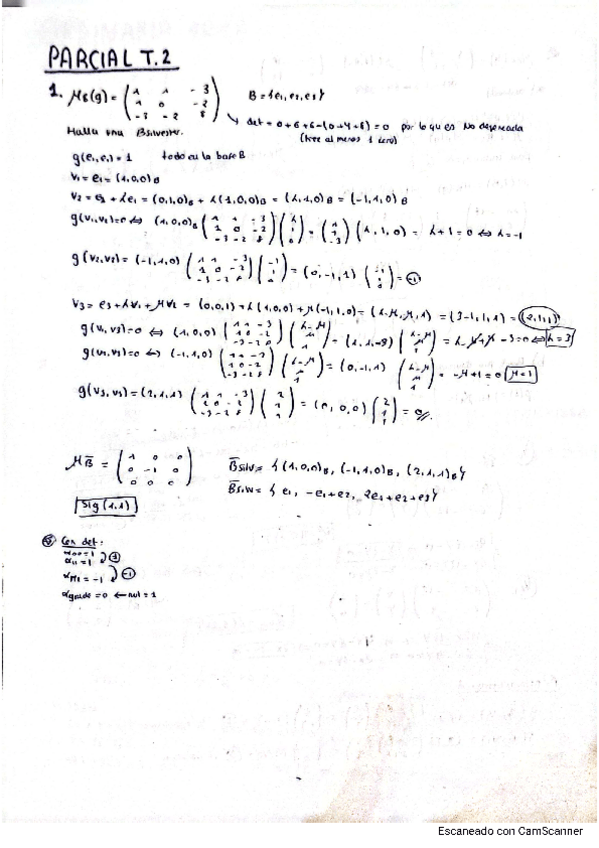 PARCIAL T.2
1. M_B(g) = (1 1 -3 / 1 0 -2 / -3 -2 8) B = {e₁, e₂, e₃}
↳ det = 0+6+6-(0+4+8) = 0 por lo que es No degenerada
Halla una Bsilvester. (tiene al menos 1 cero)
g(e₁, e₁) = 1 todo en la base B
v₁ = e₁ = (1,0,0)_B
v₂ = e₂ + λe₁ = (0,1,0)_B + λ(1,0,0)_B = (λ,1,0)_B = (-1,1,0)_B
g(v₁,v₂)=0 ⇔ (1,0,0)_B (1 1 -3 / 1 0 -2 / -3 -2 8) (λ / 1 / 0) = (1 / 1 / -3) (λ, 1, 0) = λ+1 = 0 ⇔ λ=-1
g(v₂,v₂) = (-1,1,0) (1 1 -3 / 1 0 -2 / -3 -2 8) (-1 / 1 / 0) = (0,-1,1) (-1 / 1 / 0) = -1
v₃ = e₃ + λv₁ + μv₂ = (0,0,1) + λ(1,0,0) + μ(-1,1,0) = (λ-μ, μ, 1) = (3-1,1,1) = (2,1,1)
g(v₁,v₃)=0 ⇔ (1,0,0) (1 1 -3 / 1 0 -2 / -3 -2 8) (λ-μ / μ / 1) = (1,1,-3) (λ-μ / μ / 1) = λ-μ+μ-3=0 ⇔ λ=3
g(v₂,v₃)=0 ⇔ (-1,1,0) (1 1 -3 / 1 0 -2 / -3 -2 8) (λ-μ / μ / 1) = (0,-1,1) (λ-μ / μ / 1) = -μ+1=0 μ=1
g(v₃,v₃) = (2,1,1) (1 1 -3 / 1 0 -2 / -3 -2 8) (2 / 1 / 1) = (0,0,0) (2 / 1 / 1) = 0
M_B̄ = (1 0 0 / 0 -1 0 / 0 0 0) B̄silv = {(1,0,0)_B, (-1,1,0)_B, (2,1,1)_B}
B̄silv = {e₁, -e₁+e₂, 2e₁+e₂+e₃}
Sig (1,1)
Con det:
α₀₀=1
α₁₁=1 1
= -1 -1
= 0 ← nul = 1
Escaneado con CamScanner